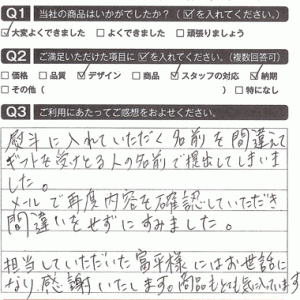 Q1 当社の商品はいかがでしたか?(☑を入れてください。)
☑大変よくできました □よくできました □頑張りましょう
Q2 ご満足いただけた項目に☑を入れてください。(複数回答可)
□価格 □品質 ☑デザイン □商品 ☑スタッフの対応 ☑納期
□その他( ) □特になし
Q3 ご利用にあたってご感想をおよせください。
熨斗に入れていただく名前を間違えて
ギフトを受けとる人の名前で提出してしまいま
した。
メールで再度内容を確認していただき
間違いをせずにすみました。
担当していただいた富平様にはお世話に
なり感謝いたします。商品もとても気に入っています